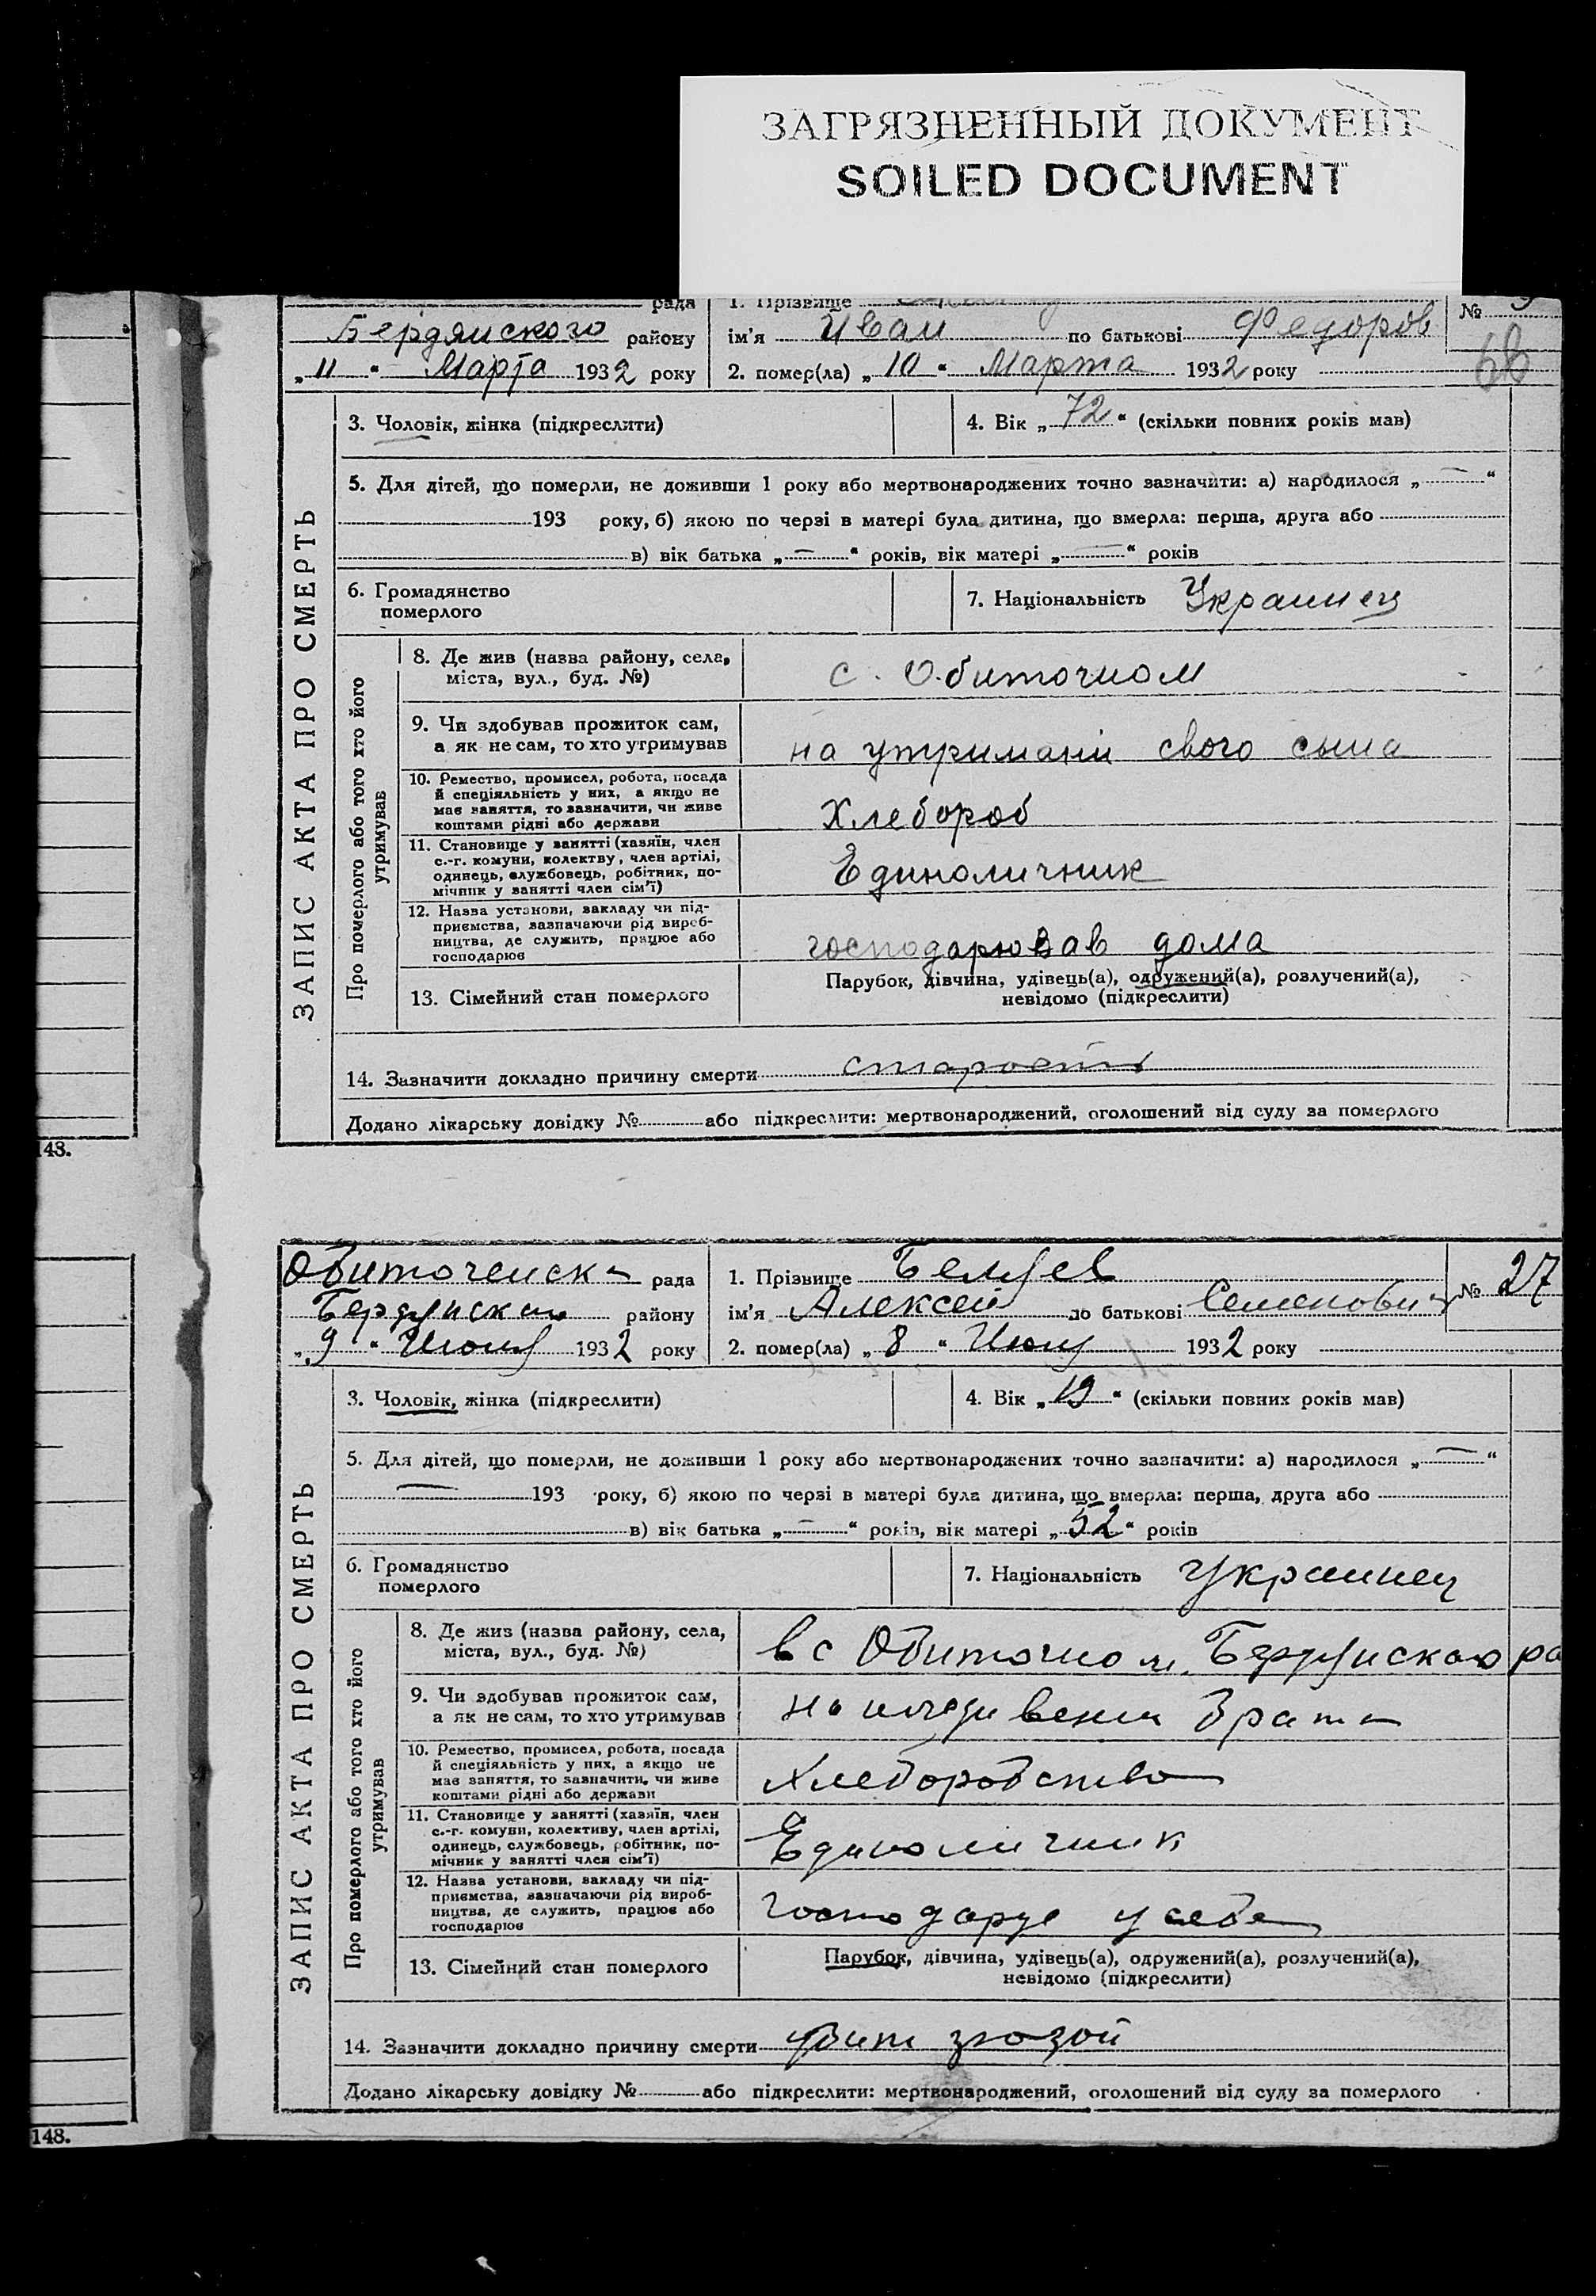 ЗАГРЯЗНЕННЫЙ ДОКУМЕНТ
SOILED DOCUMENT
рада 1. Прізвище №
Бердянского району ім'я Иван по батькові Федоров
„11“ Марта 1932 року 2. помер(ла) „10“ Марта 1932 року 68
ЗАПИС АКТА ПРО СМЕРТЬ
3. Чоловік, жінка (підкреслити) 4. Вік „72“ (скільки повних років мав)
5. Для дітей, що померли, не доживши 1 року або мертвонароджених точно зазначити: а) народилося „—“
193 року, б) якою по черзі в матері була дитина, що вмерла: перша, друга або
в) вік батька „—“ років, вік матері „—“ років
6. Громадянство
померлого
7. Національність Украинец
Про померлого або того хто його
утримував
8. Де жив (назва району, села,
міста, вул., буд. №)
с. Обиточном
9. Чи здобував прожиток сам,
а як не сам, то хто утримував
на утримании свого сына
10. Ремество, промисел, робота, посада
й спеціяльність у них, а якщо не
має заняття, то зазначити, чи живе
коштами рідні або держави
Хлебороб
11. Становище у занятті (хазяїн, член
с.-г. комуни, колектву, член артілі,
одинець, службовець, робітник, по-
мічник у занятті член сім'ї)
Единоличник
12. Назва установи, закладу чи під-
приємства, зазначаючи рід вироб-
ництва, де служить, працює або
господарює
господарював дома
13. Сімейний стан померлого
Парубок, дівчина, удівець(а), одружений(а), розлучений(а),
невідомо (підкреслити)
14. Зазначити докладно причину смерти старость
Додано лікарську довідку № або підкреслити: мертвонароджений, оголошений від суду за померлого
143.
Обиточенска рада 1. Прізвище № 27
Бердянского району ім'я Алексей по батькові Семенович
„9“ Июня 1932 року 2. помер(ла) „8“ Июня 1932 року
ЗАПИС АКТА ПРО СМЕРТЬ
3. Чоловік, жінка (підкреслити) 4. Вік „19“ (скільки повних років мав)
5. Для дітей, що померли, не доживши 1 року або мертвонароджених точно зазначити: а) народилося „—“
— 193 року, б) якою по черзі в матері була дитина, що вмерла: перша, друга або
в) вік батька „—“ років, вік матері „52“ років
6. Громадянство
померлого
7. Національність Украинец
Про померлого або того хто його
утримував
8. Де жив (назва району, села,
міста, вул., буд. №)
в с Обиточном Бердянского ра
9. Чи здобував прожиток сам,
а як не сам, то хто утримував
на иждивении брата
10. Ремество, промисел, робота, посада
й спеціяльність у них, а якщо не
має заняття, то зазначити, чи живе
коштами рідні або держави
Хлеборобство
11. Становище у занятті (хазяїн, член
с.-г. комуни, колективу, член артілі,
одинець, службовець, робітник, по-
мічник у занятті член сім'ї)
Единоличник
12. Назва установи, закладу чи під-
приємства, зазначаючи рід вироб-
ництва, де служить, працює або
господарює
господарує у себе
13. Сімейний стан померлого
Парубок, дівчина, удівець(а), одружений(а), розлучений(а),
невідомо (підкреслити)
14. Зазначити докладно причину смерти убит грозой
Додано лікарську довідку № або підкреслити: мертвонароджений, оголошений від суду за померлого
148.